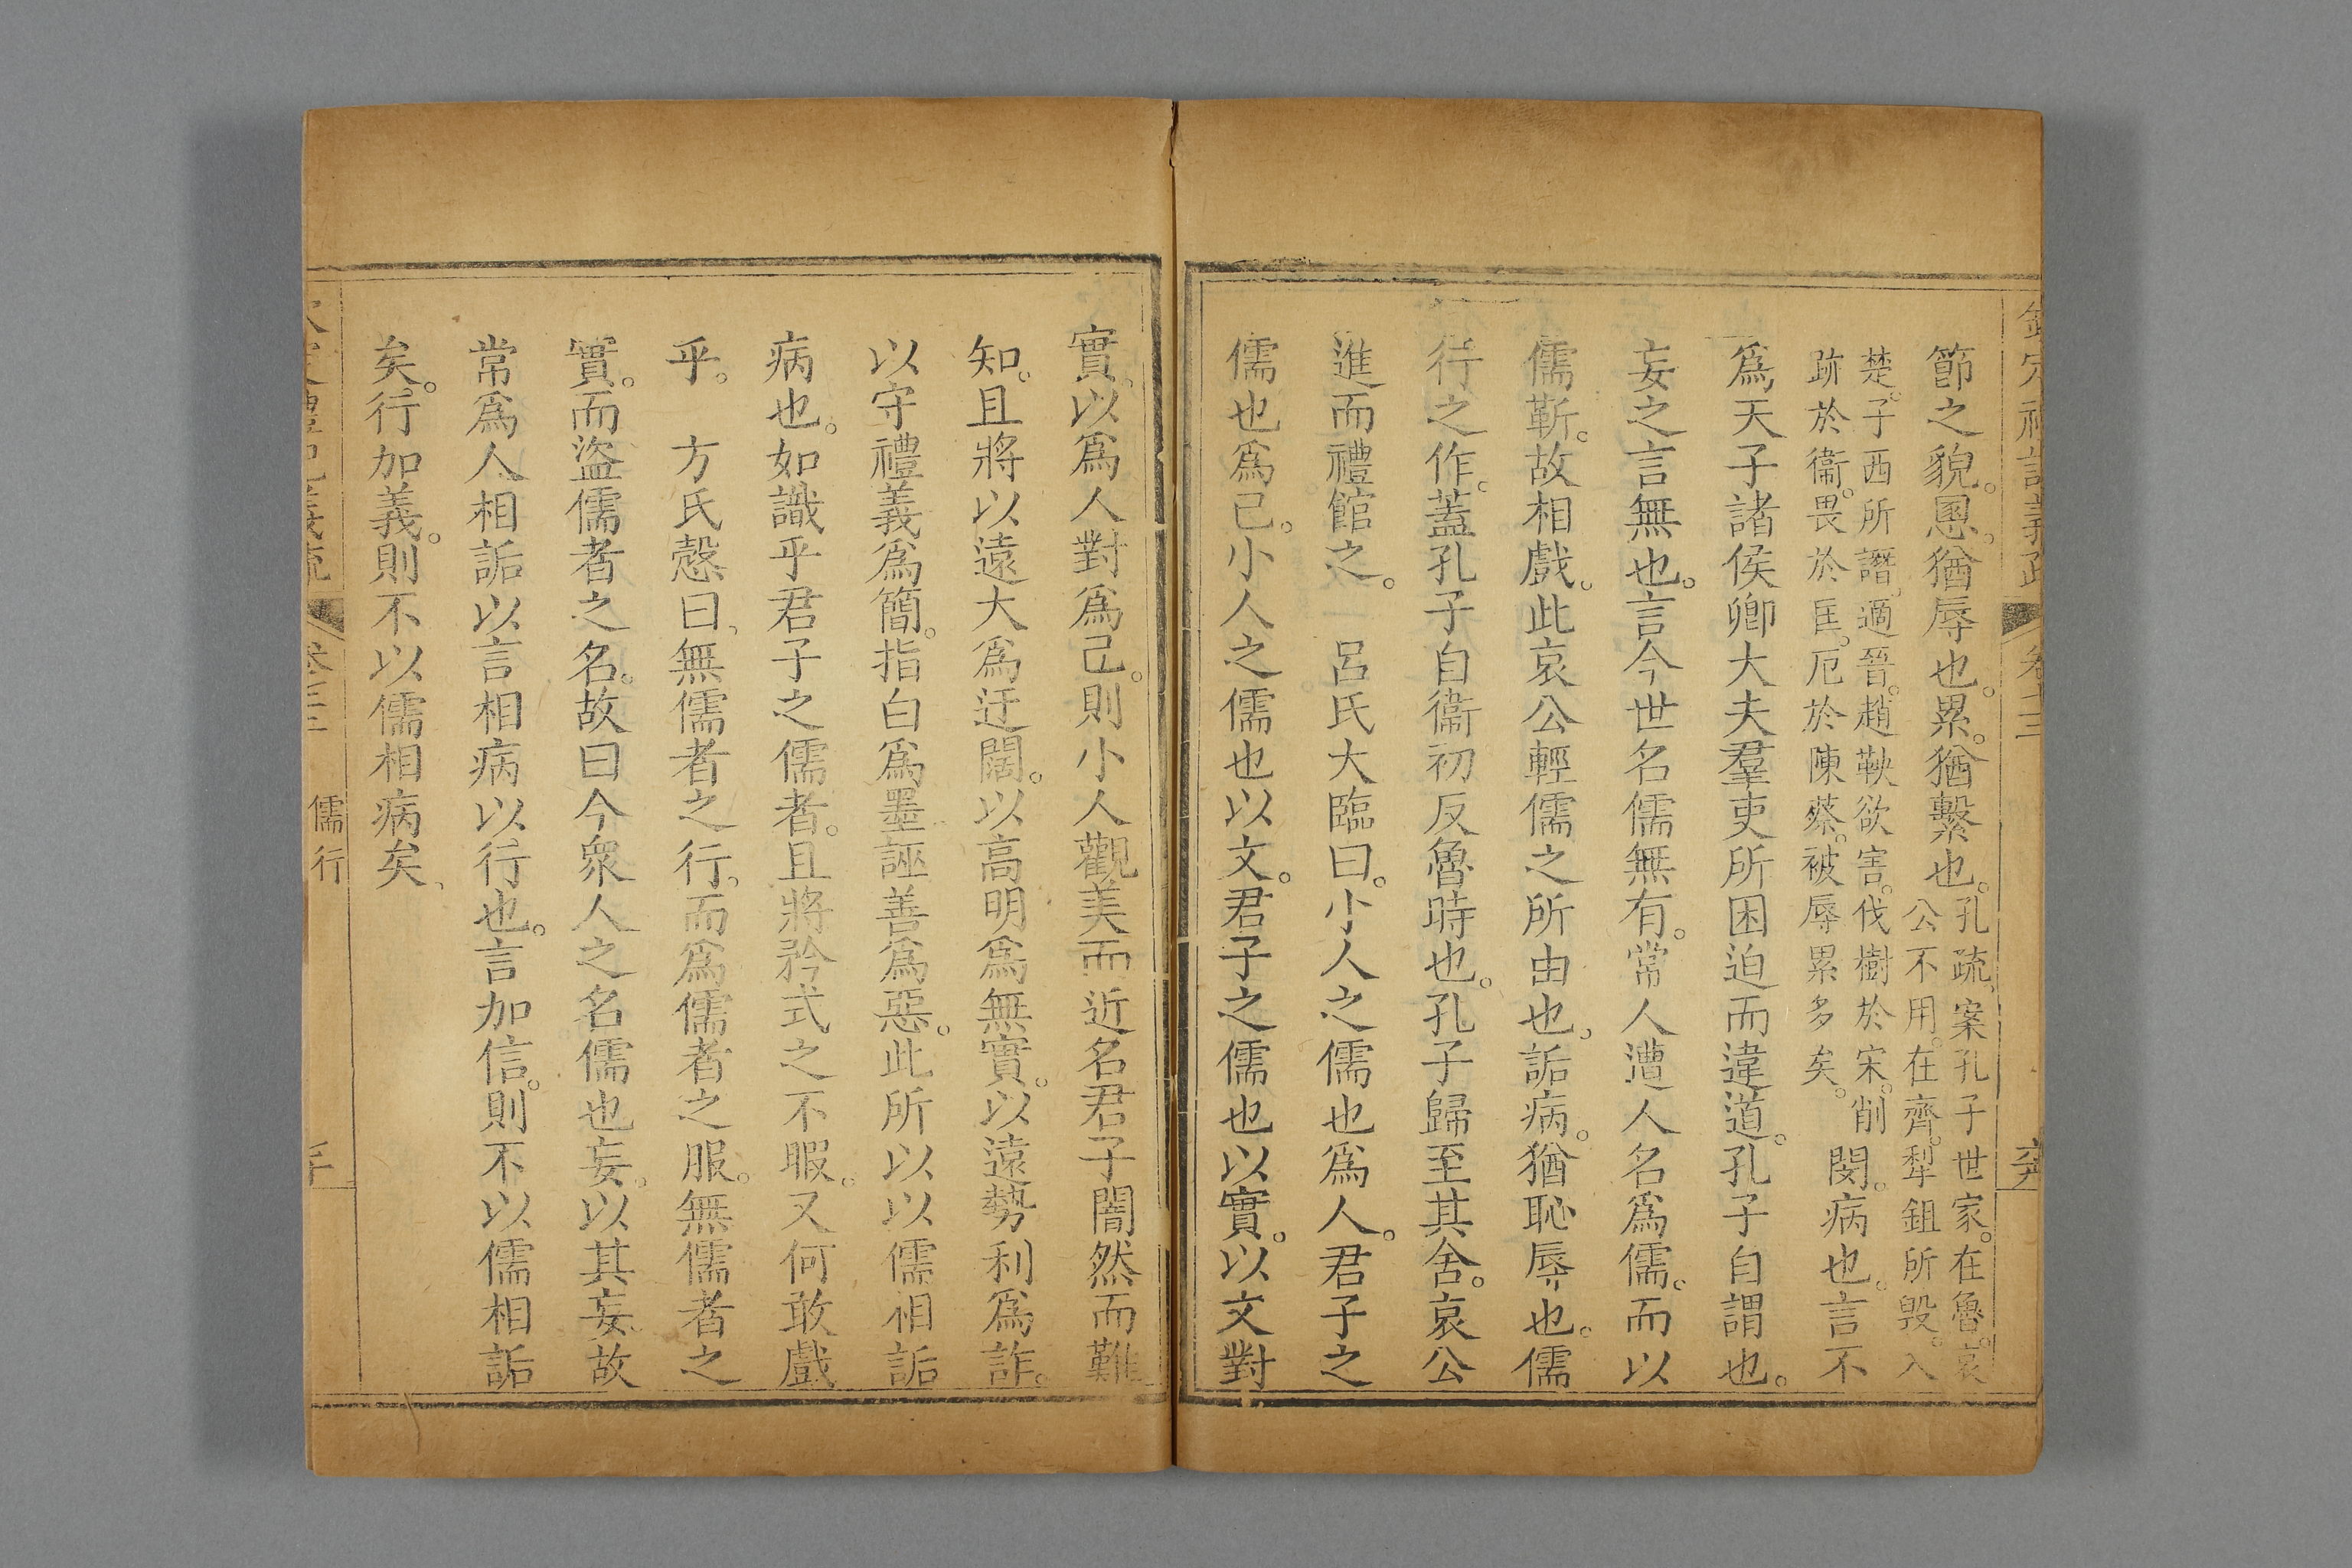 節之貌。慁。猶辱也。累。猶繫也。孔疏、案孔子世家。在魯。哀
公不用。在齊。犁鉏所毁。入
楚。子西所譖。適晉。趙鞅欲害。伐樹於宋。削
跡於衞。畏於匡。厄於陳蔡。被辱累多矣。閔。病也。言不
爲天子諸侯卿大夫羣吏所困迫而違道。孔子自謂也。
妄之言無也。言今世名儒無有。常人遭人名爲儒。而以
儒靳。故相戲。此哀公輕儒之所由也、詬病。猶恥辱也。儒
行之作。蓋孔子自衞初反魯時也。孔子歸至其舍。哀公
進而禮館之。 呂氏大臨曰。小人之儒也爲人。君子之
儒也爲己。小人之儒也以文。君子之儒也以實。以文對
實、以爲人對爲己。則小人觀美而近名君子闇然而難
知。且將以遠大爲迂闊。以高明爲無實。以遠勢利爲詐。
以守禮義爲簡。指白爲墨誣善爲惡。此所以以儒相詬
病也。如識乎君子之儒者。且將矜式之不暇。又何敢戲
乎。 方氏慤曰、無儒者之行、而爲儒者之服。無儒者之
實。而盜儒者之名。故曰今衆人之名儒也妄。以其妄、故
常爲人相詬以言相病以行也。言加信。則不以儒相詬
矣。行加義。則不以儒相病矣、
儒行